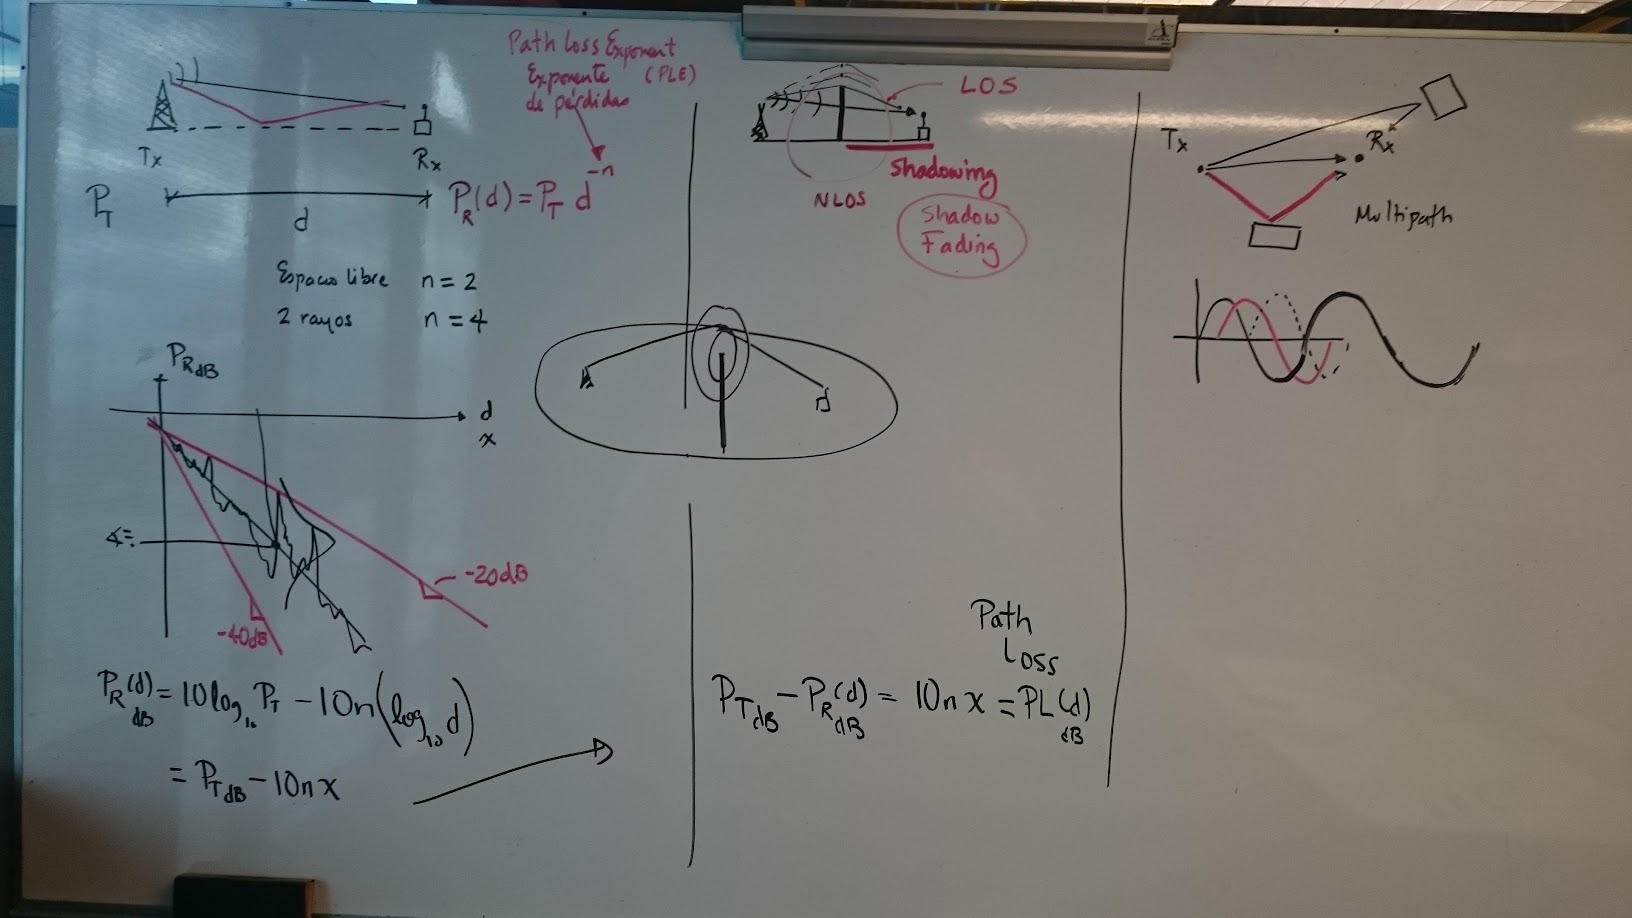 Path Loss Exponent
Exponente (PLE)
de pérdidas
Tx
Rx
P_T
d
P_R(d) = P_T d^-n
Espacio libre n = 2
2 rayos n = 4
P_R dB
d
x
-20dB
-40dB
P_R(d) dB = 10 log_10 P_T - 10n(log_10 d)
= P_T dB - 10nx
LOS
Shadowing
NLOS
Shadow
Fading
Path
Loss
P_T dB - P_R(d) dB = 10nx = PL(d) dB
Tx
Rx
Multipath